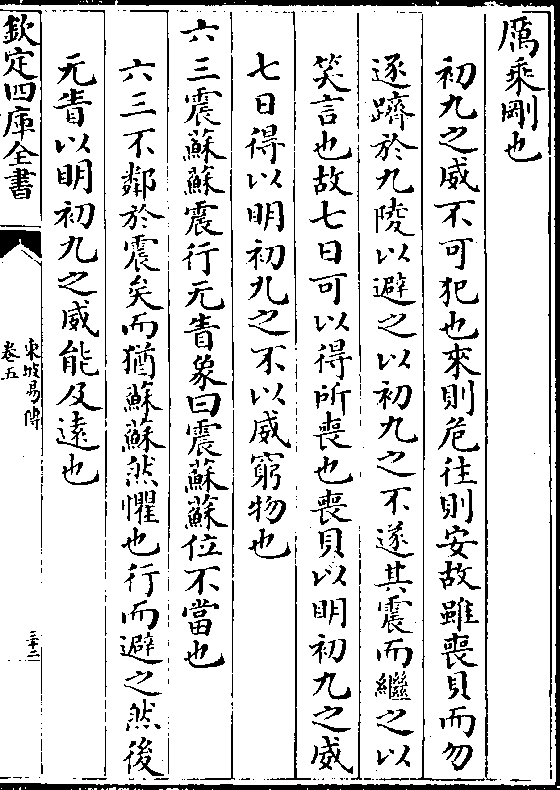 厲乘剛也
初九之威不可犯也來則危往則安故雖喪貝而勿
逐躋於九陵以避之以初九之不遂其震而繼之以
笑言也故七日可以得所喪也喪貝以明初九之威
七日得以明初九之不以威窮物也
六三震蘇蘇震行无眚象曰震蘇蘇位不當也
六三不鄰於震矣而猶蘇蘇然懼也行而避之然後
无眚以明初九之威能及遠也
欽定四庫全書
東坡易傳
卷五
三十二